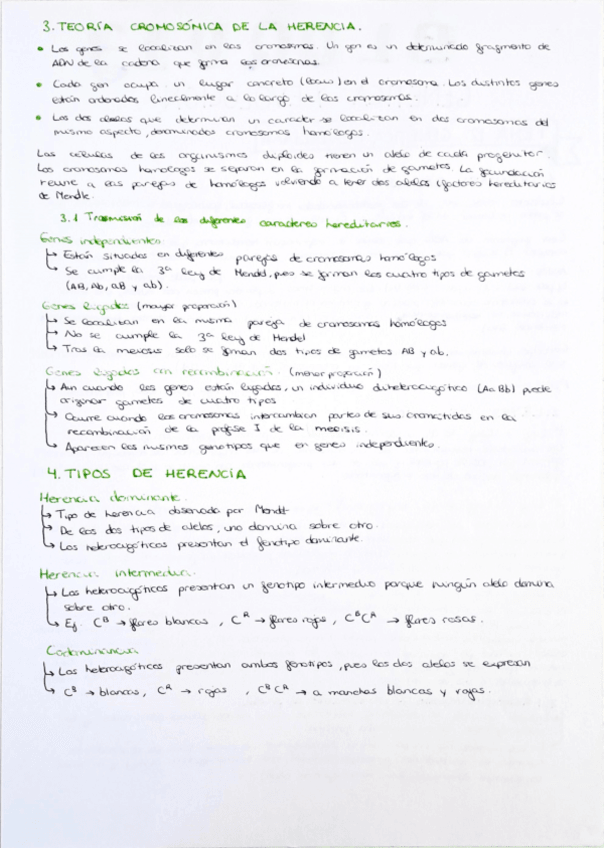 3. TEORÍA CROMOSÓMICA DE LA HERENCIA.
• Los genes se localizan en los cromosomas. Un gen es un determinado fragmento de
ADN de la cadena que forma los cromosomas.
• Cada gen ocupa un lugar concreto (locus) en el cromosoma. Los distintos genes
están ordenados linealmente a lo largo de los cromosomas.
• Los dos alelos que determinan un carácter se localizan en dos cromosomas del
mismo aspecto, denominados cromosomas homólogos.
Las células de los organismos diploides tienen un alelo de cada progenitor.
Los cromosomas homólogos se separan en la formación de gametos. La fecundación
reune a las parejas de homólogos volviendo a tener dos alelos (factores hereditarios
de Mendel.
3.1 Trasmisión de los diferentes caracteres hereditarios.
Genes independientes:
↳ Están situados en diferentes parejas de cromosomas homólogos
↳ Se cumple la 3ª Ley de Mendel, pues se forman los cuatro tipos de gametos
(AB, Ab, aB y ab).
Genes ligados (mayor proporción)
↳ Se localizan en la misma pareja de cromosomas homólogos
↳ No se cumple la 3ª Ley de Mendel
↳ Tras la meiosis solo se forman dos tipos de gametos AB y ab.
Genes ligados con recombinación. (menor proporción)
↳ Aun cuando los genes están ligados, un individuo diheterocigótico (AaBb) puede
originar gametos de cuatro tipos
↳ Ocurre cuando los cromosomas intercambian partes de sus cromátidas en la
recombinación de la profase I de la meiosis.
↳ Aparecen los mismos genotipos que en genes independientes.
4. TIPOS DE HERENCIA
Herencia dominante.
↳ Tipo de herencia observada por Mendel
↳ De los dos tipos de alelos, uno domina sobre otro.
↳ Los heterocigóticos presentan el fenotipo dominante.
Herencia intermedia.
↳ Los heterocigóticos presentan un fenotipo intermedio porque ningún alelo domina
sobre otro.
↳ Ej. Cᴮ → flores blancas, Cᴿ → flores rojas, CᴮCᴿ → flores rosas.
Codominancia
↳ Los heterocigóticos presentan ambos fenotipos, pues los dos alelos se expresan
↳ Cᴮ → blancas, Cᴿ → rojas, CᴮCᴿ → a manchas blancas y rojas.